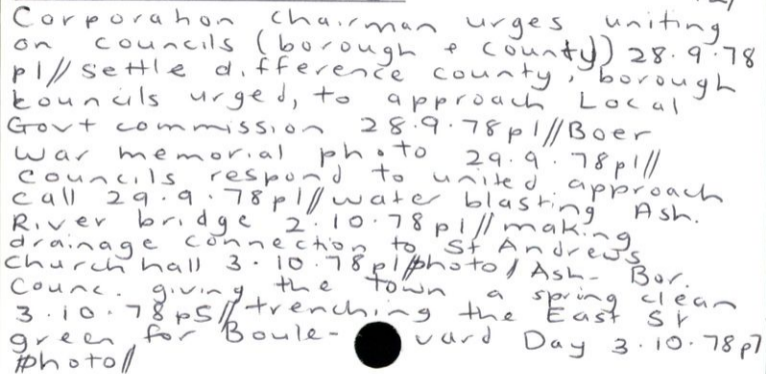 Corporahon chairman urges uniting
on councils (borough + county) 28.9.78
p1// settle difference county, borough
kouncils urged, to approach Local
Govt commission 28.9.78 p1// Boer
War memorial photo 29.9.78 p1//
Councils respond to united approach
call 29.9.78 p1// water blasting Ash.
River bridge 2.10.78 p1// making
drainage connection to St Andrews
Church hall 3.10.78 p1/photo/ Ash- Bor.
Counc. giving the town a spring clean
3.10.78 p5// trenching the East St
green for Boule- vard Day 3.10.78 p7
photo//